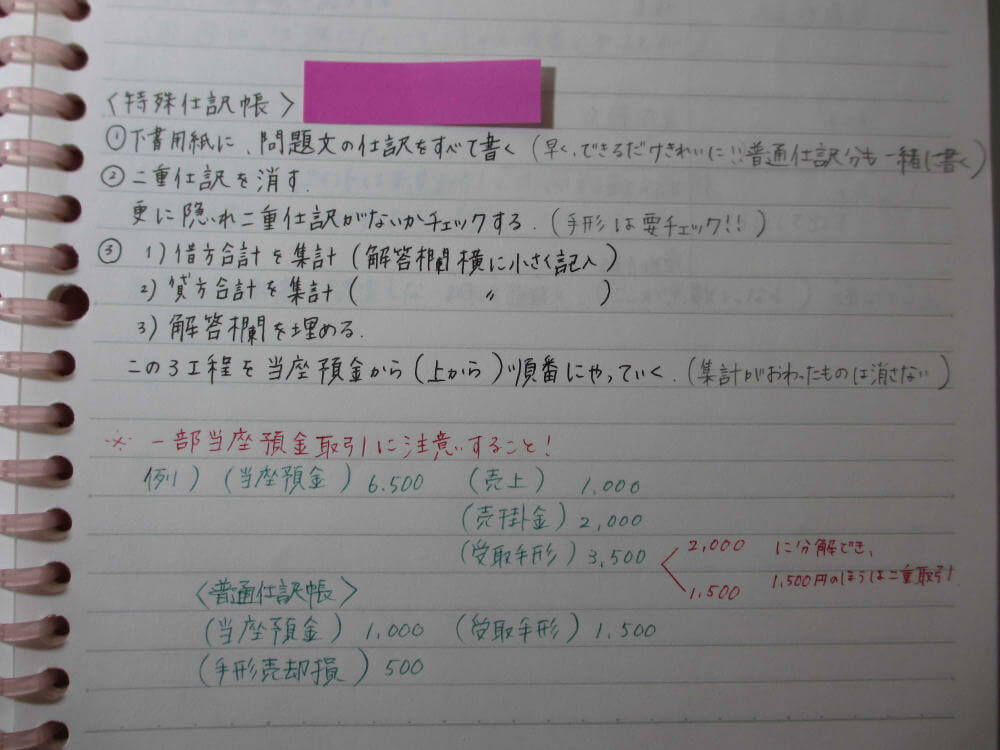 〈特殊仕訳帳〉
①下書用紙に、問題文の仕訳をすべて書く(早く、できるだけきれいに!!普通仕訳分も一緒に書く)
②二重仕訳を消す.
更に隠れ二重仕訳がないかチェックする.(手形は要チェック!!)
③ 1)借方合計を集計(解答欄横に小さく記入)
2)貸方合計を集計( 〃 )
3)解答欄を埋める.
この3工程を当座預金から(上から)順番にやっていく.(集計がおわったものは消さない)
※ 一部当座預金取引に注意すること!
例1)(当座預金)6.500 (売上) 1,000
(売掛金)2,000
(受取手形)3,500
2,000 に分解でき、
1.500 1,500円のほうは二重取引
〈普通仕訳帳〉
(当座預金)1,000 (受取手形)1,500
(手形売却損)500